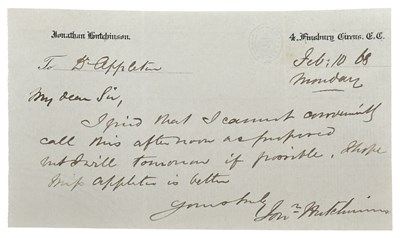 Jonathan Hutchinson.
4, Finsbury Circus, E.C.
Feb: 10 68
Monday
To Dr Appleton
My dear Sir,
I find that I cannot conveniently
call this afternoon as proposed
but I will tomorrow if possible. I hope
Miss Appleton is better
Yours truly
Jonn Hutchinson